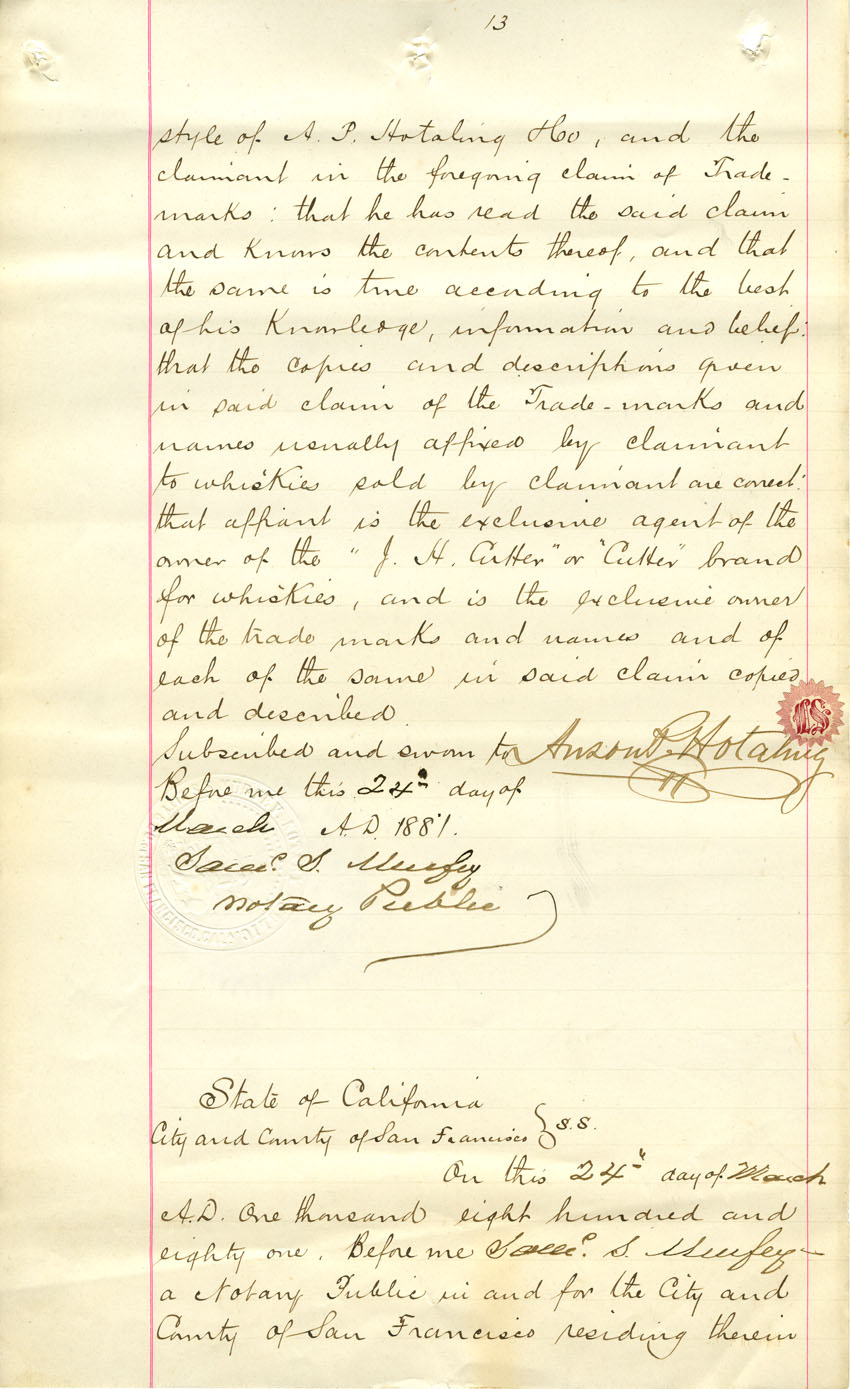 13
style of A. P. Hotaling & Co, and the
claimant in the foregoing claim of Trade-
marks: that he has read the said claim
and knows the contents thereof, and that
the same is true according to the best
of his knowledge, information and belief:
that the copies and descriptions given
in said claim of the Trade-marks and
names usually affixed by claimant
to whiskies sold by claimant are correct:
that affiant is the exclusive agent of the
owner of the "J. H. Cutter" or "Cutter" brand
for whiskies, and is the exclusive owner
of the trade marks and names and of
each of the same in said claim copied
and described.
LS
Subscribed and sworn to Anson P. Hotaling
Before me this 24th day of
March A.D. 1881.
Saml. S. Murfey
Notary Public
State of California
City and County of San Francisco } s.s.
On this 24th day of March
A.D. One thousand eight hundred and
eighty one. Before me Saml. S. Murfey
a Notary Public in and for the City and
County of San Francisco residing therein